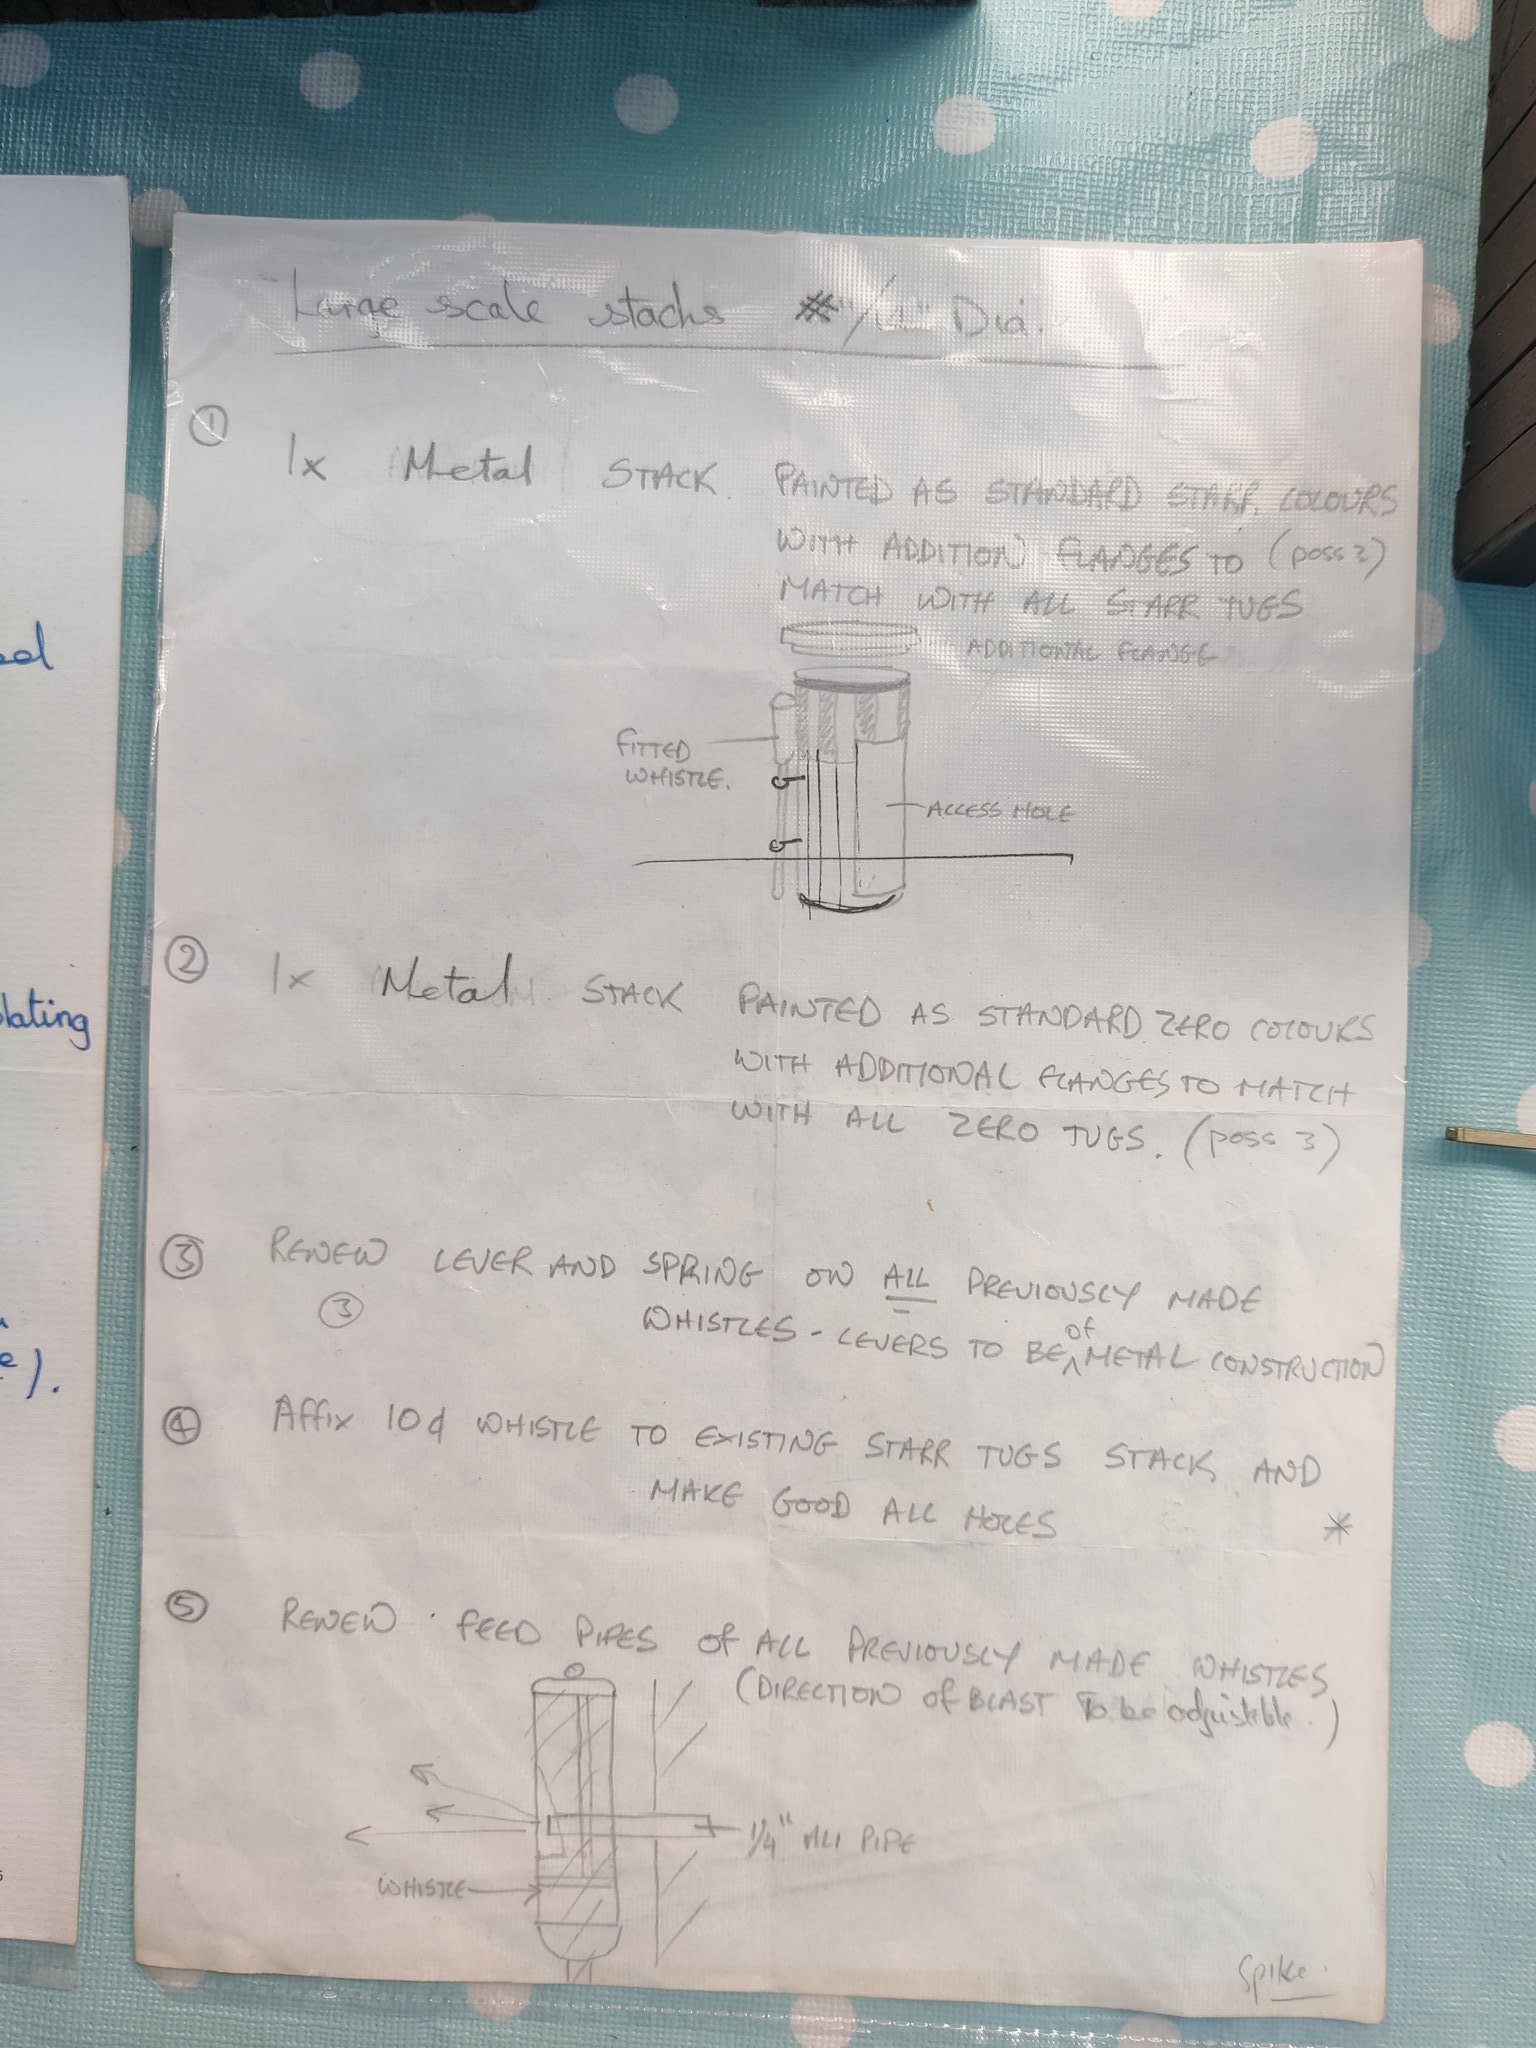 Large scale stacks /14" Dia.
① 1x Metal STACK. PAINTED AS STANDARD STARR COLOURS
WITH ADDITION FLANGES TO (poss 2)
MATCH WITH ALL STARR TUGS
ADDITIONAL FLANGE
FITTED
WHISTLE.
ACCESS HOLE
② 1x Metal STACK PAINTED AS STANDARD ZERO COLOURS
WITH ADDITIONAL FLANGES TO MATCH
WITH ALL ZERO TUGS. (poss 3)
③ RENEW LEVER AND SPRING ON ALL PREVIOUSLY MADE
③ WHISTLES - LEVERS TO BE of METAL CONSTRUCTION
④ Affix 10d WHISTLE TO EXISTING STARR TUGS STACK AND
MAKE GOOD ALL HOLES *
⑤ RENEW FEED PIPES Of ALL PREVIOUSLY MADE WHISTLES
(DIRECTION of BLAST To be adjustable.)
1/4" ALI PIPE
WHISTLE
Spike.
lating
e).